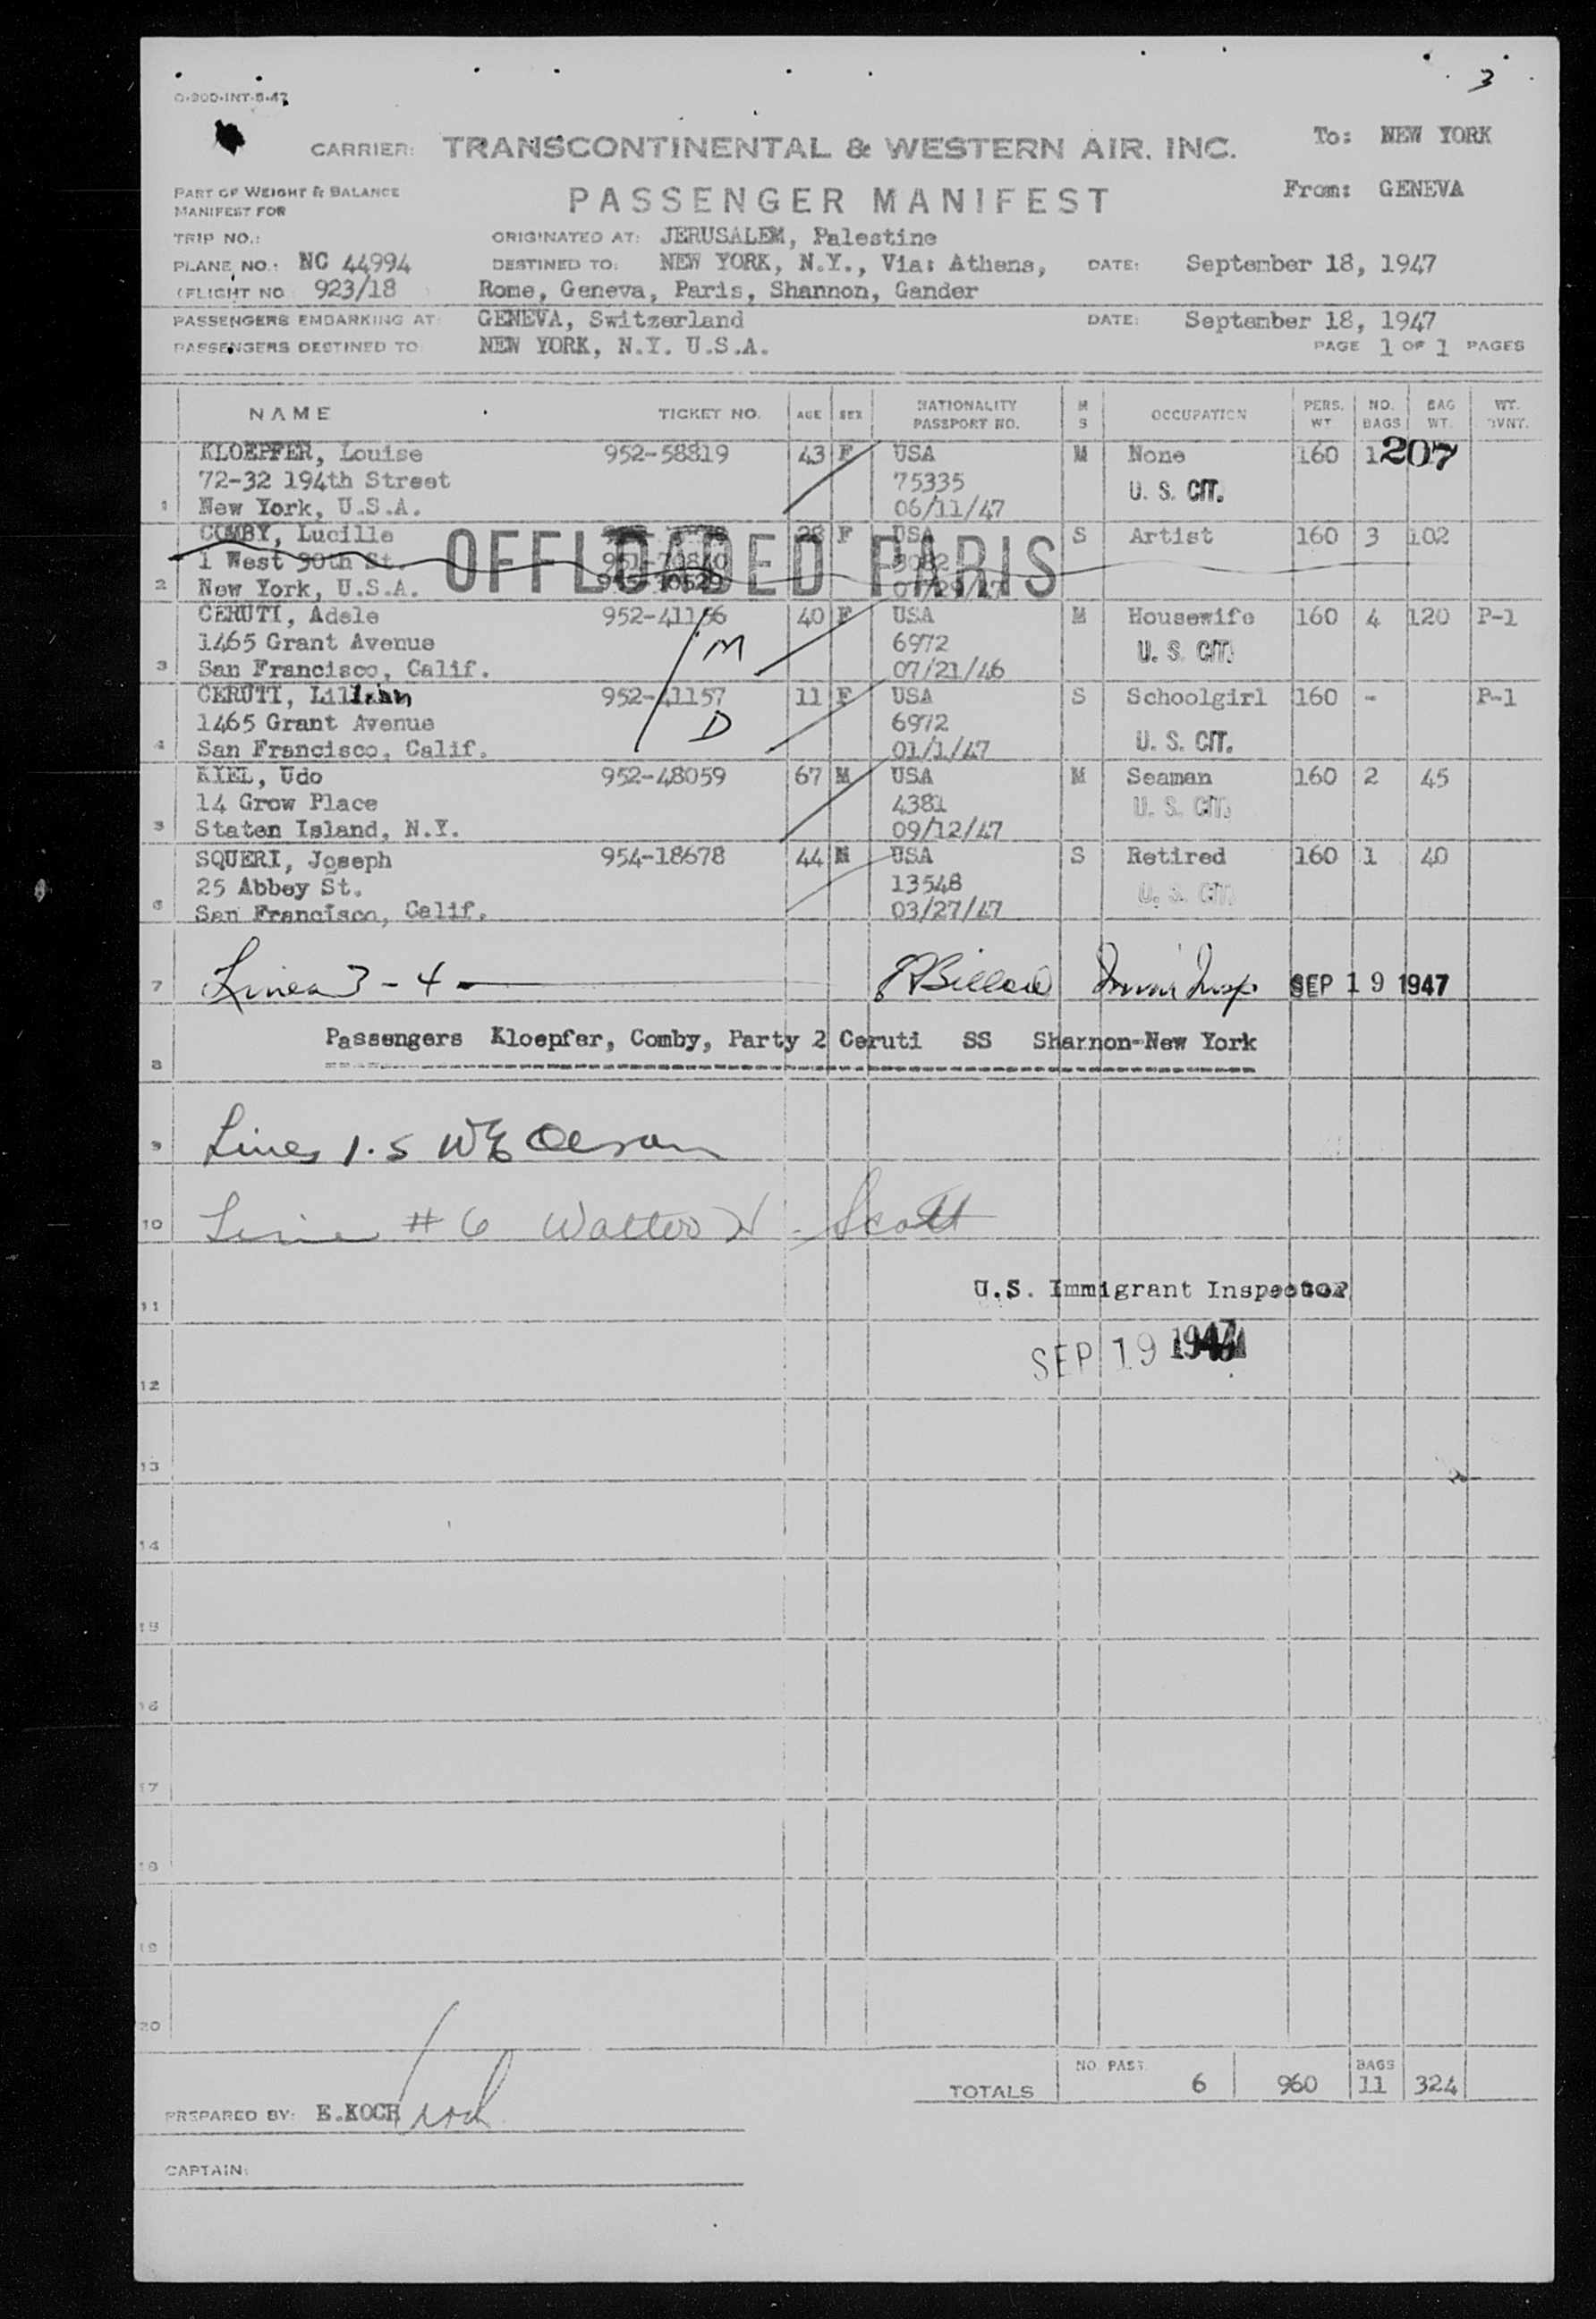 3
O-900-INT-8-47
CARRIER: TRANSCONTINENTAL & WESTERN AIR. INC. To: NEW YORK
PART OF WEIGHT & BALANCE PASSENGER MANIFEST From: GENEVA
MANIFEST FOR
TRIP NO.: ORIGINATED AT: JERUSALEM, Palestine
PLANE NO.: NC 44994 DESTINED TO: NEW YORK, N.Y., Via: Athens, DATE: September 18, 1947
(FLIGHT NO 923/18 ) Rome, Geneva, Paris, Shannon, Gander
PASSENGERS EMBARKING AT: GENEVA, Switzerland DATE: September 18, 1947
PASSENGERS DESTINED TO: NEW YORK, N.Y. U.S.A. PAGE 1 OF 1 PAGES
NAME TICKET NO. AGE SEX NATIONALITY PASSPORT NO. M S OCCUPATION PERS. WT. NO. BAGS BAG WT. WT.
KLOEPFER, Louise 952-58819 43 F USA M None 160 1 207
72-32 194th Street 75335 U. S. CIT.
1 New York, U.S.A. 06/11/47
COMBY, Lucille 28 F USA S Artist 160 3 102
1 West 90th St. OFFLOADED PARIS
2 New York, U.S.A.
CERUTI, Adele 952-41156 40 F USA M Housewife 160 4 120 P-1
1465 Grant Avenue M 6972 U. S. CIT.
3 San Francisco, Calif. 07/21/46
CERUTI, Lillian 952-41157 11 F USA S Schoolgirl 160 - P-1
1465 Grant Avenue D 6972 U. S. CIT.
4 San Francisco, Calif. 01/1/47
KIEL, Udo 952-48059 67 M USA M Seaman 160 2 45
14 Grow Place 4381 U. S. CIT.
5 Staten Island, N.Y. 09/12/47
SQUERI, Joseph 954-18678 44 M USA S Retired 160 1 40
25 Abbey St. 13548 U. S. CIT.
6 San Francisco, Calif. 03/27/47
7 Lines 3 - 4 - SEP 19 1947
Passengers Kloepfer, Comby, Party 2 Ceruti SS Shannon-New York
8
9 Lines 1.5 WE Olson
10 Line # 6 Walter Scott
U.S. Immigrant Inspector
11
SEP 19 1947
12
13
14
15
16
17
18
19
20
TOTALS NO. PASS. 6 960 BAGS 11 324
PREPARED BY: E.KOCH Koch
CAPTAIN: